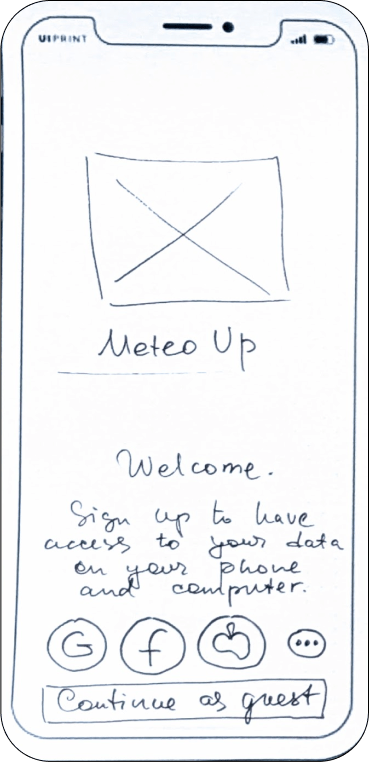 UIPRINT
Meteo Up
Welcome.
Sign up to have
access to your data
on your phone
and computer.
G f
Continue as guest